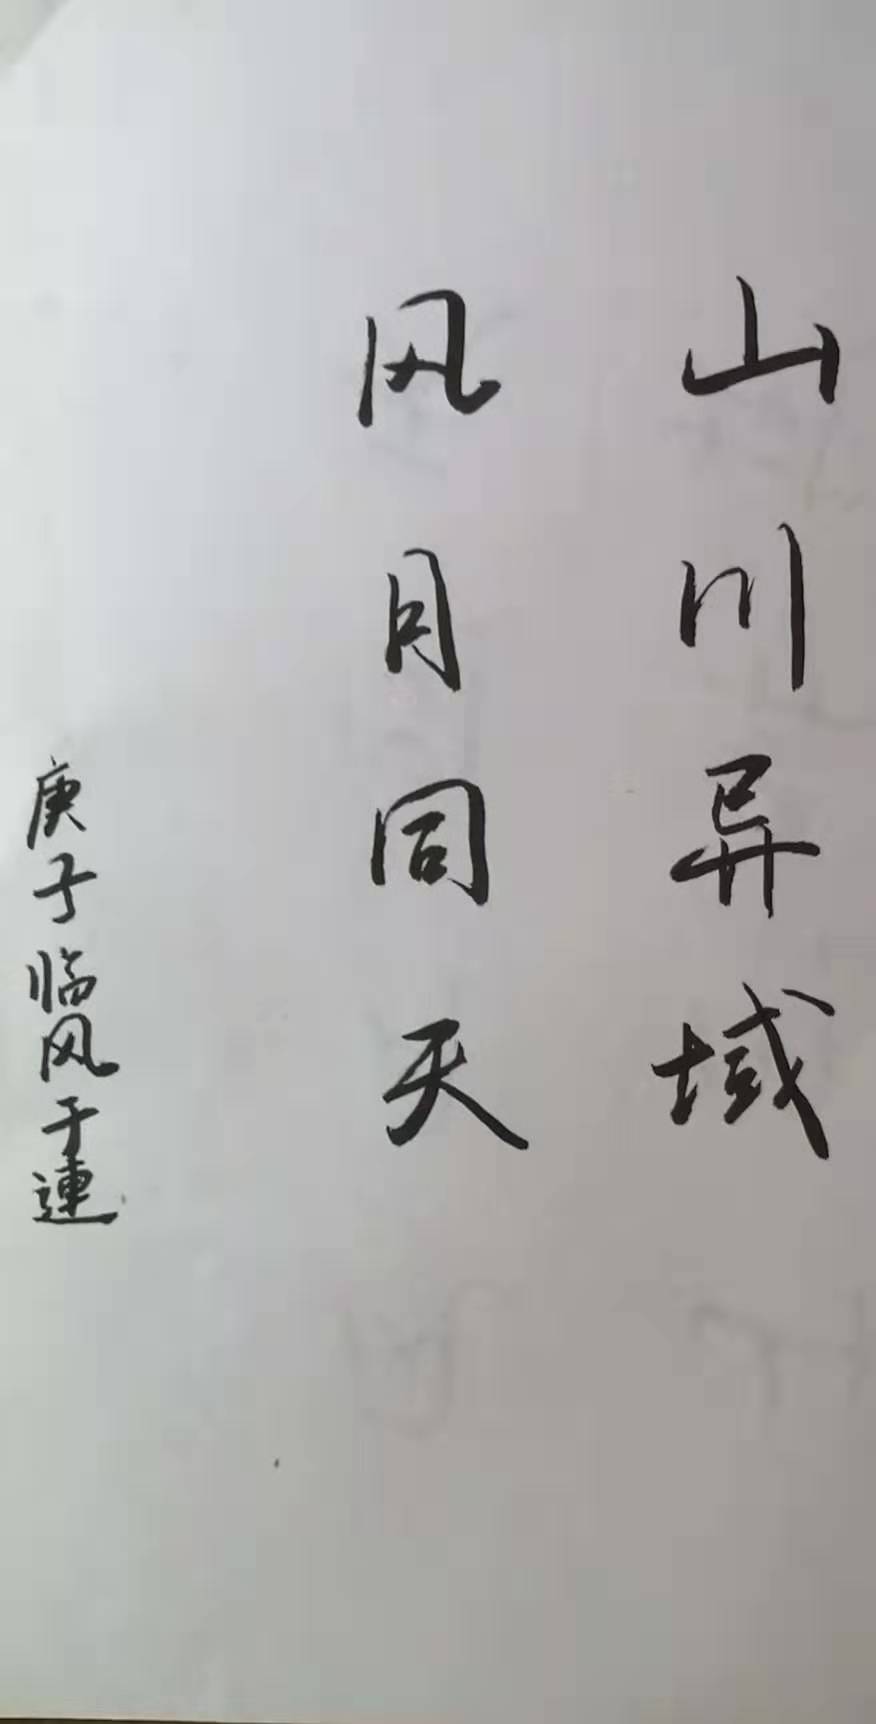 山川异域
风月同天
庚子临风于連